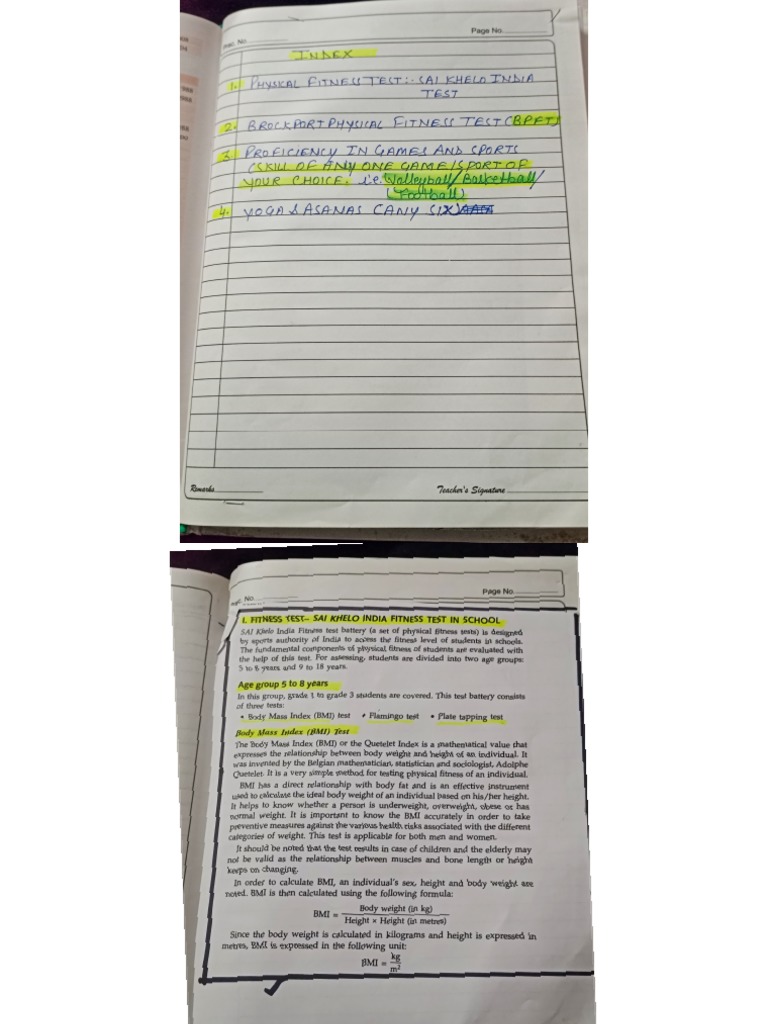 Page No.
INDEX
1. PHYSICAL FITNESS TEST:- SAI KHELO INDIA
TEST
2. BROCKPORT PHYSICAL FITNESS TEST (BPFT)
3. PROFICIENCY IN GAMES AND SPORTS
(SKILL OF ANY ONE GAME/SPORT OF
YOUR CHOICE. i.e. Volleyball/Basketball/
(Football)
4. YOGA & ASANAS CANY SIX)
Remarks
Teacher's Signature
Page No.
No.
I. FITNESS TEST– SAI KHELO INDIA FITNESS TEST IN SCHOOL
SAI Khelo India Fitness test battery (a set of physical fitness tests) is designed
by sports authority of India to access the fitness level of students in schools.
The fundamental components of physical fitness of students are evaluated with
the help of this test. For assessing, students are divided into two age groups:
5 to 8 years and 9 to 18 years.
Age group 5 to 8 years
In this group, grade 1 to grade 3 students are covered. This test battery consists
of three tests:
• Body Mass Index (BMI) test • Flamingo test • Plate tapping test
Body Mass Index (BMI) Test
The Body Mass Index (BMI) or the Quetelet Index is a mathematical value that
expresses the relationship between body weight and height of an individual. It
was invented by the Belgian mathematician, statistician and sociologist, Adolphe
Quetelet. It is a very simple method for testing physical fitness of an individual.
BMI has a direct relationship with body fat and is an effective instrument
used to calculate the ideal body weight of an individual based on his/her height.
It helps to know whether a person is underweight, overweight, obese or has
normal weight. It is important to know the BMI accurately in order to take
preventive measures against the various health risks associated with the different
categories of weight. This test is applicable for both men and women.
It should be noted that the test results in case of children and the elderly may
not be valid as the relationship between muscles and bone length or height
keeps on changing.
In order to calculate BMI, an individual's sex, height and body weight are
noted. BMI is then calculated using the following formula:
BMI = Body weight (in kg) / Height × Height (in metres)
Since the body weight is calculated in kilograms and height is expressed in
metres, BMI is expressed in the following unit:
BMI = kg / m²